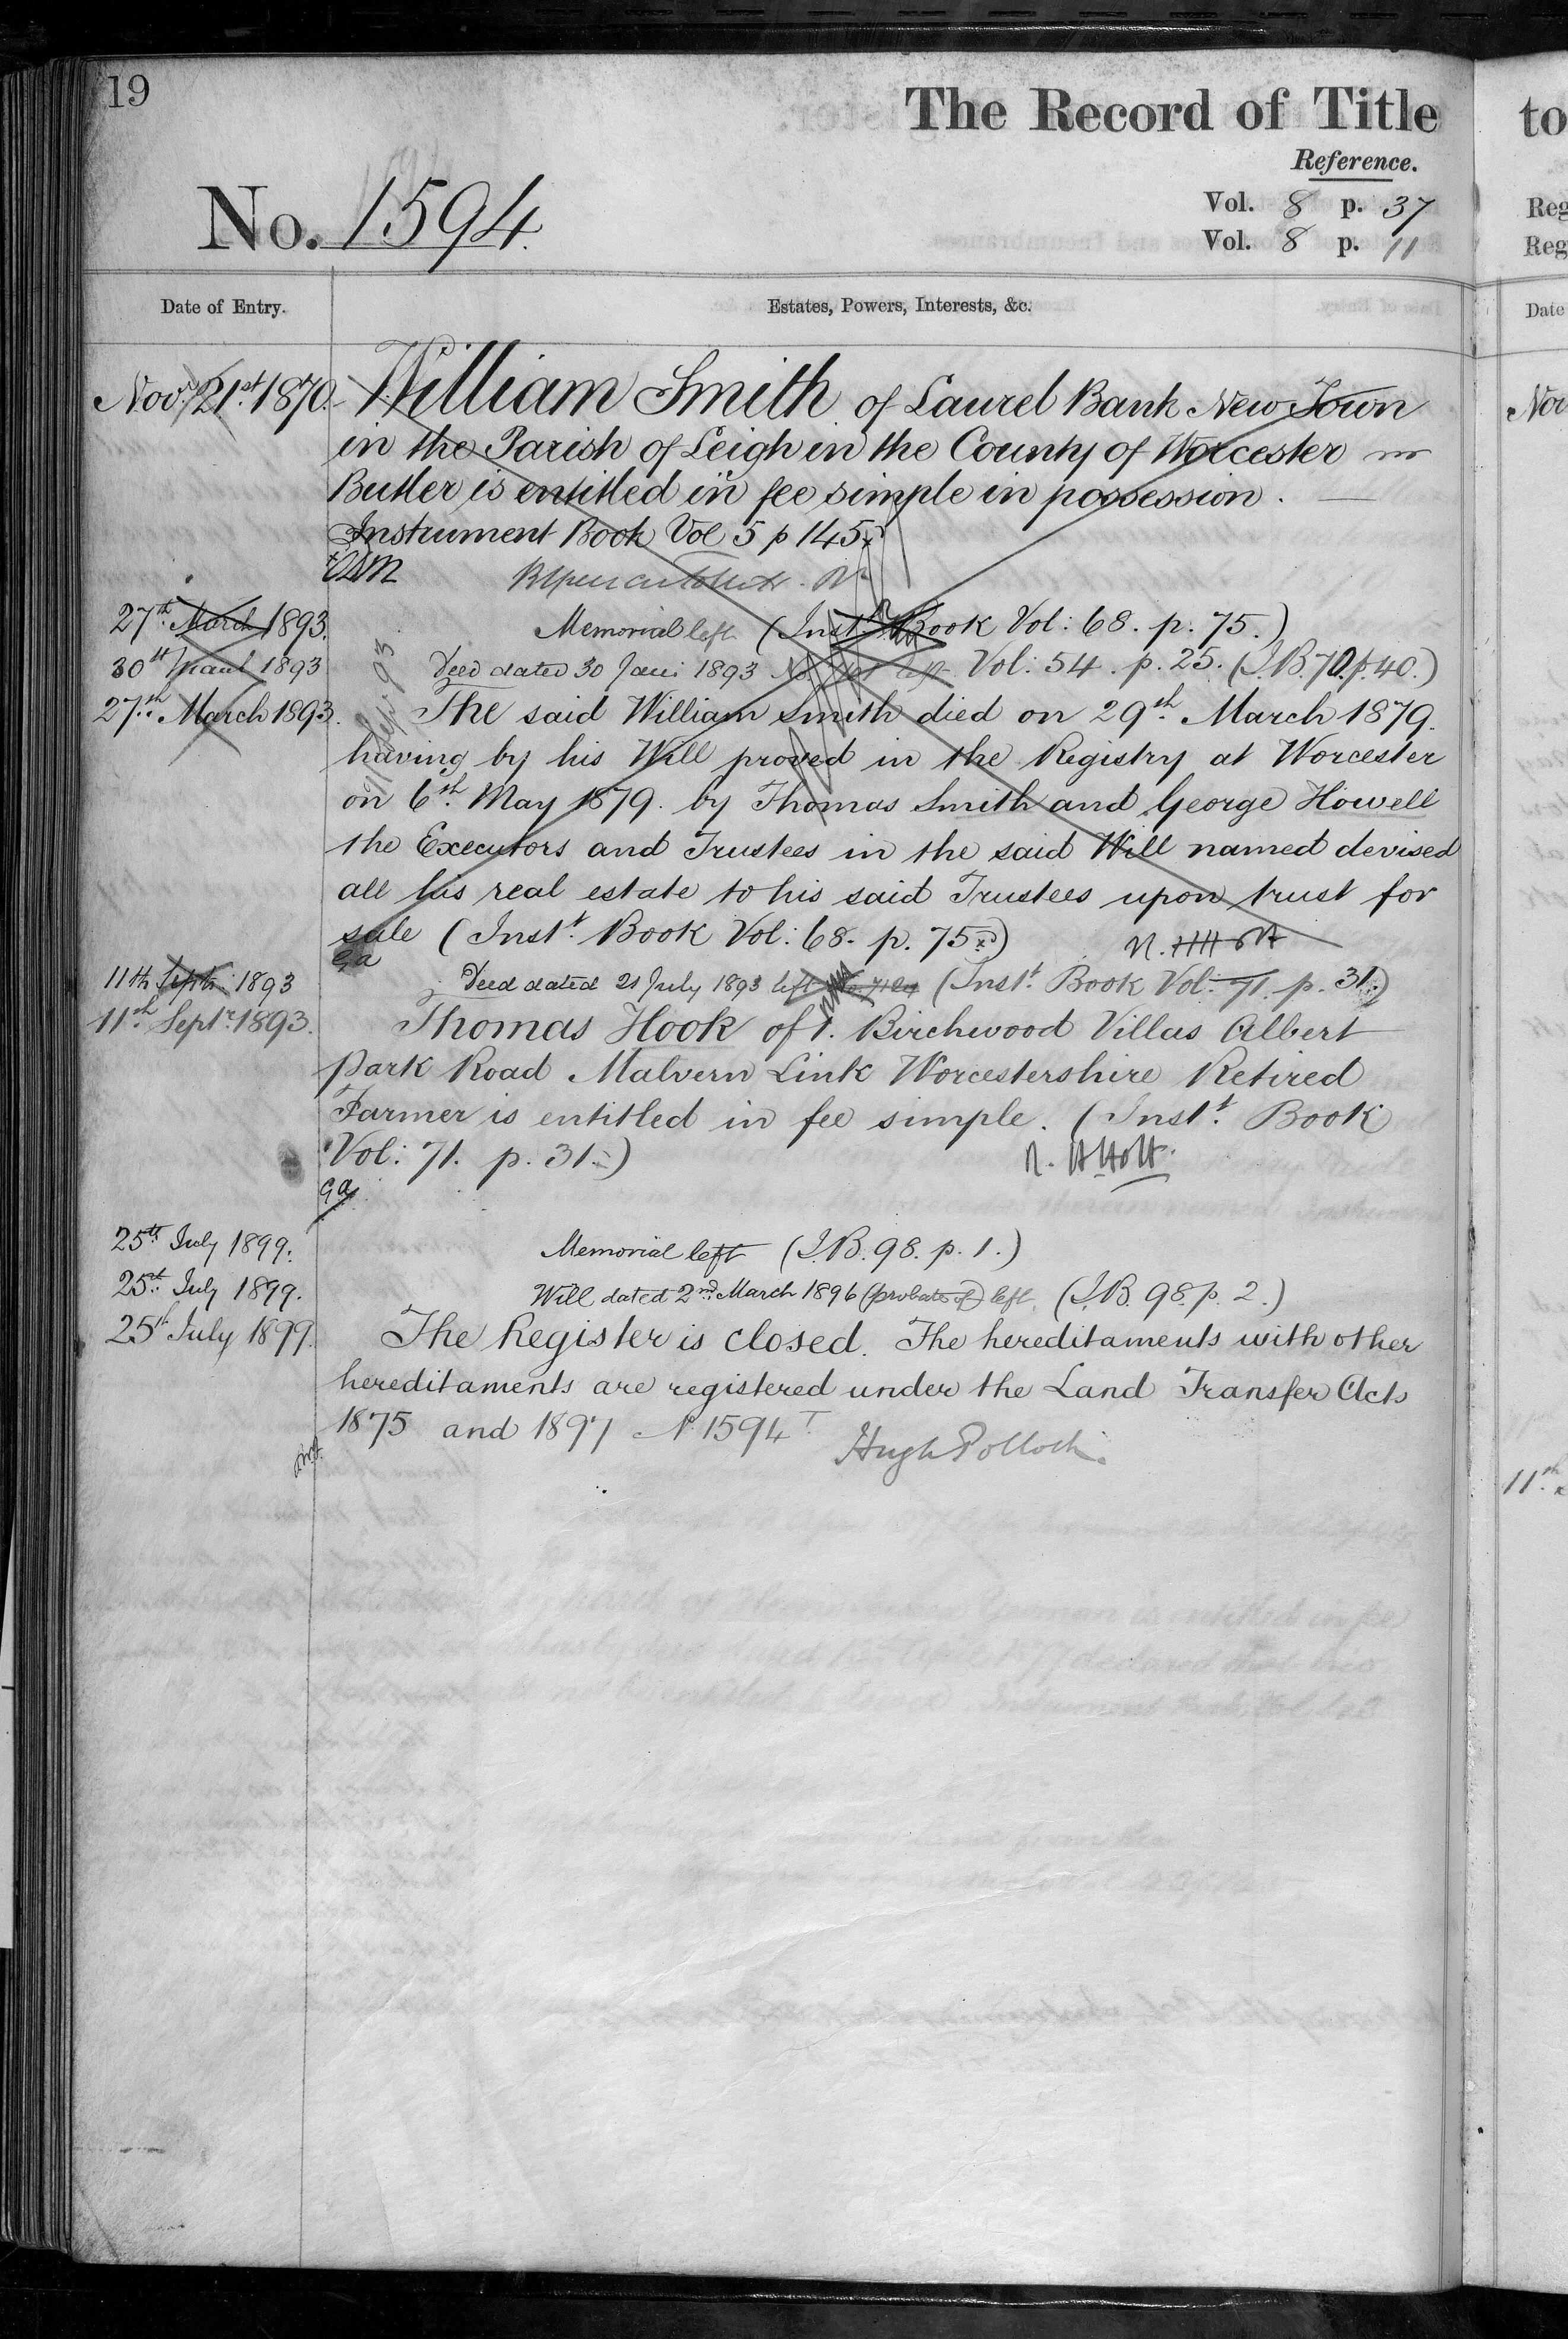 19
The Record of Title
to
Reference.
Vol. 8 p. 37
Reg
No. 1594.
Vol. 8 p. 11
Reg
Date of Entry.
Estates, Powers, Interests, &c.
Date
Novr. 21st. 1870. William Smith of Laurel Bank New Town
Nov
in the Parish of Leigh in the County of Worcester
Butler is entitled in fee simple in possession.
Instrument Book Vol 5 p 145
27th March 1893. Memorial left (Instt. Book Vol: 68. p. 75.)
30th 1893 Deed dated 30 Jany 1893 Vol: 54. p. 25. (I.B. 70. p. 40.)
27th. March 1893. The said William Smith died on 29th. March 1879.
having by his Will proved in the Registry at Worcester
on 6th. May 1879. by Thomas Smith and George Howell
the Executors and Trustees in the said Will named devised
all his real estate to his said Trustees upon trust for
sale (Instt. Book Vol: 68. p. 75)
ga
11th Sept 1893 Deed dated 21 July 1893 left (Instt. Book Vol: 71. p. 31.)
11th. Septr. 1893. Thomas Hook of 1. Birchwood Villas Albert
Park Road Malvern Link Worcestershire Retired
Farmer is entitled in fee simple. (Instt. Book
Vol: 71. p. 31.)
ga
25th July 1899. Memorial left (I.B. 98. p. 1.)
25th July 1899. Will dated 2nd. March 1896 (probate of) left. (I.B. 98. p. 2.)
25th July 1899. The Register is closed. The hereditaments with other
hereditaments are registered under the Land Transfer Acts
1875 and 1897 No 1594T
Hugh Pollock.
11th.